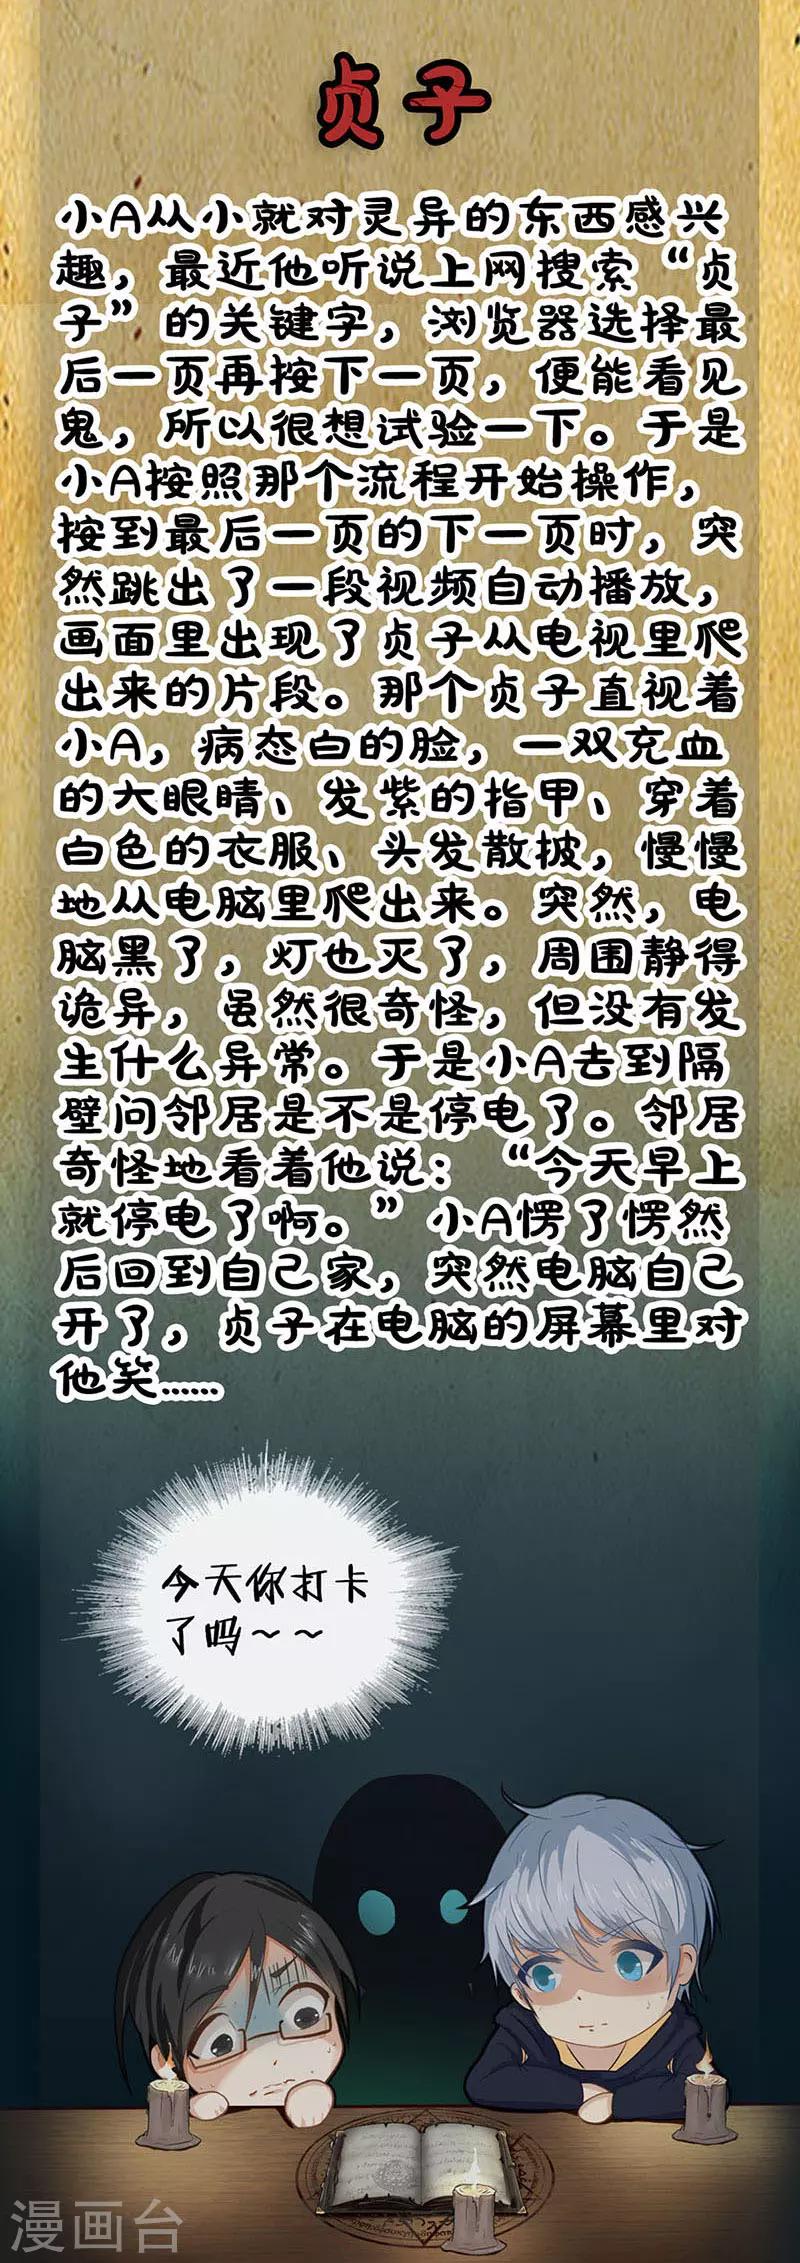 贞子
小A从小就对灵异的东西感兴
趣，最近他听说上网搜索“贞
子”的关键字，浏览器选择最
后一页再按下一页，便能看见
鬼，所以很想试验一下。于是
小A按照那个流程开始操作，
按到最后一页的下一页时，突
然跳出了一段视频自动播放，
画面里出现了贞子从电视里爬
出来的片段。那个贞子直视着
小A，病态白的脸，一双充血
的大眼睛、发紫的指甲、穿着
白色的衣服、头发散披，慢慢
地从电脑里爬出来。突然，电
脑黑了，灯也灭了，周围静得
诡异，虽然很奇怪，但没有发
生什么异常。于是小A去到隔
壁问邻居是不是停电了。邻居
奇怪地看着他说：“今天早上
就停电了啊。”小A愣了愣然
后回到自己家，突然电脑自己
开了，贞子在电脑的屏幕里对
他笑……
今天你打卡
了吗～～
漫画台